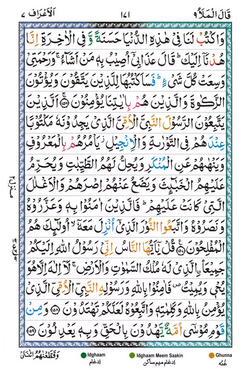 قَالَ الْمَلَاُ ٩ ١٧١ اَلْاَعْرَاف ٧
وَاكْتُبْ لَنَا فِيْ هٰذِهِ الدُّنْيَا حَسَنَةً وَّفِي الْاٰخِرَةِ اِنَّا
هُدْنَآ اِلَيْكَ ؕ قَالَ عَذَابِيْٓ اُصِيْبُ بِهٖ مَنْ اَشَآءُ ۚ وَرَحْمَتِيْ
وَسِعَتْ كُلَّ شَيْءٍ ؕ فَسَاَكْتُبُهَا لِلَّذِيْنَ يَتَّقُوْنَ وَيُؤْتُوْنَ
الزَّكٰوةَ وَالَّذِيْنَ هُمْ بِاٰيٰتِنَا يُؤْمِنُوْنَ ۝ اَلَّذِيْنَ
يَتَّبِعُوْنَ الرَّسُوْلَ النَّبِيَّ الْاُمِّيَّ الَّذِيْ يَجِدُوْنَهٗ مَكْتُوْبًا
عِنْدَهُمْ فِي التَّوْرٰىةِ وَالْاِنْجِيْلِ ؗ يَاْمُرُهُمْ بِالْمَعْرُوْفِ
وَيَنْهٰىهُمْ عَنِ الْمُنْكَرِ وَيُحِلُّ لَهُمُ الطَّيِّبٰتِ وَيُحَرِّمُ
عَلَيْهِمُ الْخَبٰٓئِثَ وَيَضَعُ عَنْهُمْ اِصْرَهُمْ وَالْاَغْلٰلَ
الَّتِيْ كَانَتْ عَلَيْهِمْ ؕ فَالَّذِيْنَ اٰمَنُوْا بِهٖ وَعَزَّرُوْهُ
وَنَصَرُوْهُ وَاتَّبَعُوا النُّوْرَ الَّذِيْٓ اُنْزِلَ مَعَهٗٓ ۙ اُولٰٓئِكَ هُمُ
الْمُفْلِحُوْنَ ۝ قُلْ يٰٓاَيُّهَا النَّاسُ اِنِّيْ رَسُوْلُ اللّٰهِ اِلَيْكُمْ
جَمِيْعَا ۨالَّذِيْ لَهٗ مُلْكُ السَّمٰوٰتِ وَالْاَرْضِ ۚ لَآ اِلٰهَ اِلَّا هُوَ
يُحْيٖ وَيُمِيْتُ ۪ فَاٰمِنُوْا بِاللّٰهِ وَرَسُوْلِهِ النَّبِيِّ الْاُمِّيِّ الَّذِيْ
يُؤْمِنُ بِاللّٰهِ وَكَلِمٰتِهٖ وَاتَّبِعُوْهُ لَعَلَّكُمْ تَهْتَدُوْنَ ۝ وَمِنْ
قَوْمِ مُوْسٰٓى اُمَّةٌ يَّهْدُوْنَ بِالْحَقِّ وَبِهٖ يَعْدِلُوْنَ ۝
وَقَطَّعْنٰهُمُ اثْنَتَيْ
Idgham Idgham Meem Saakin Ghunna
إدغام إدغام ميم ساكن غنّه